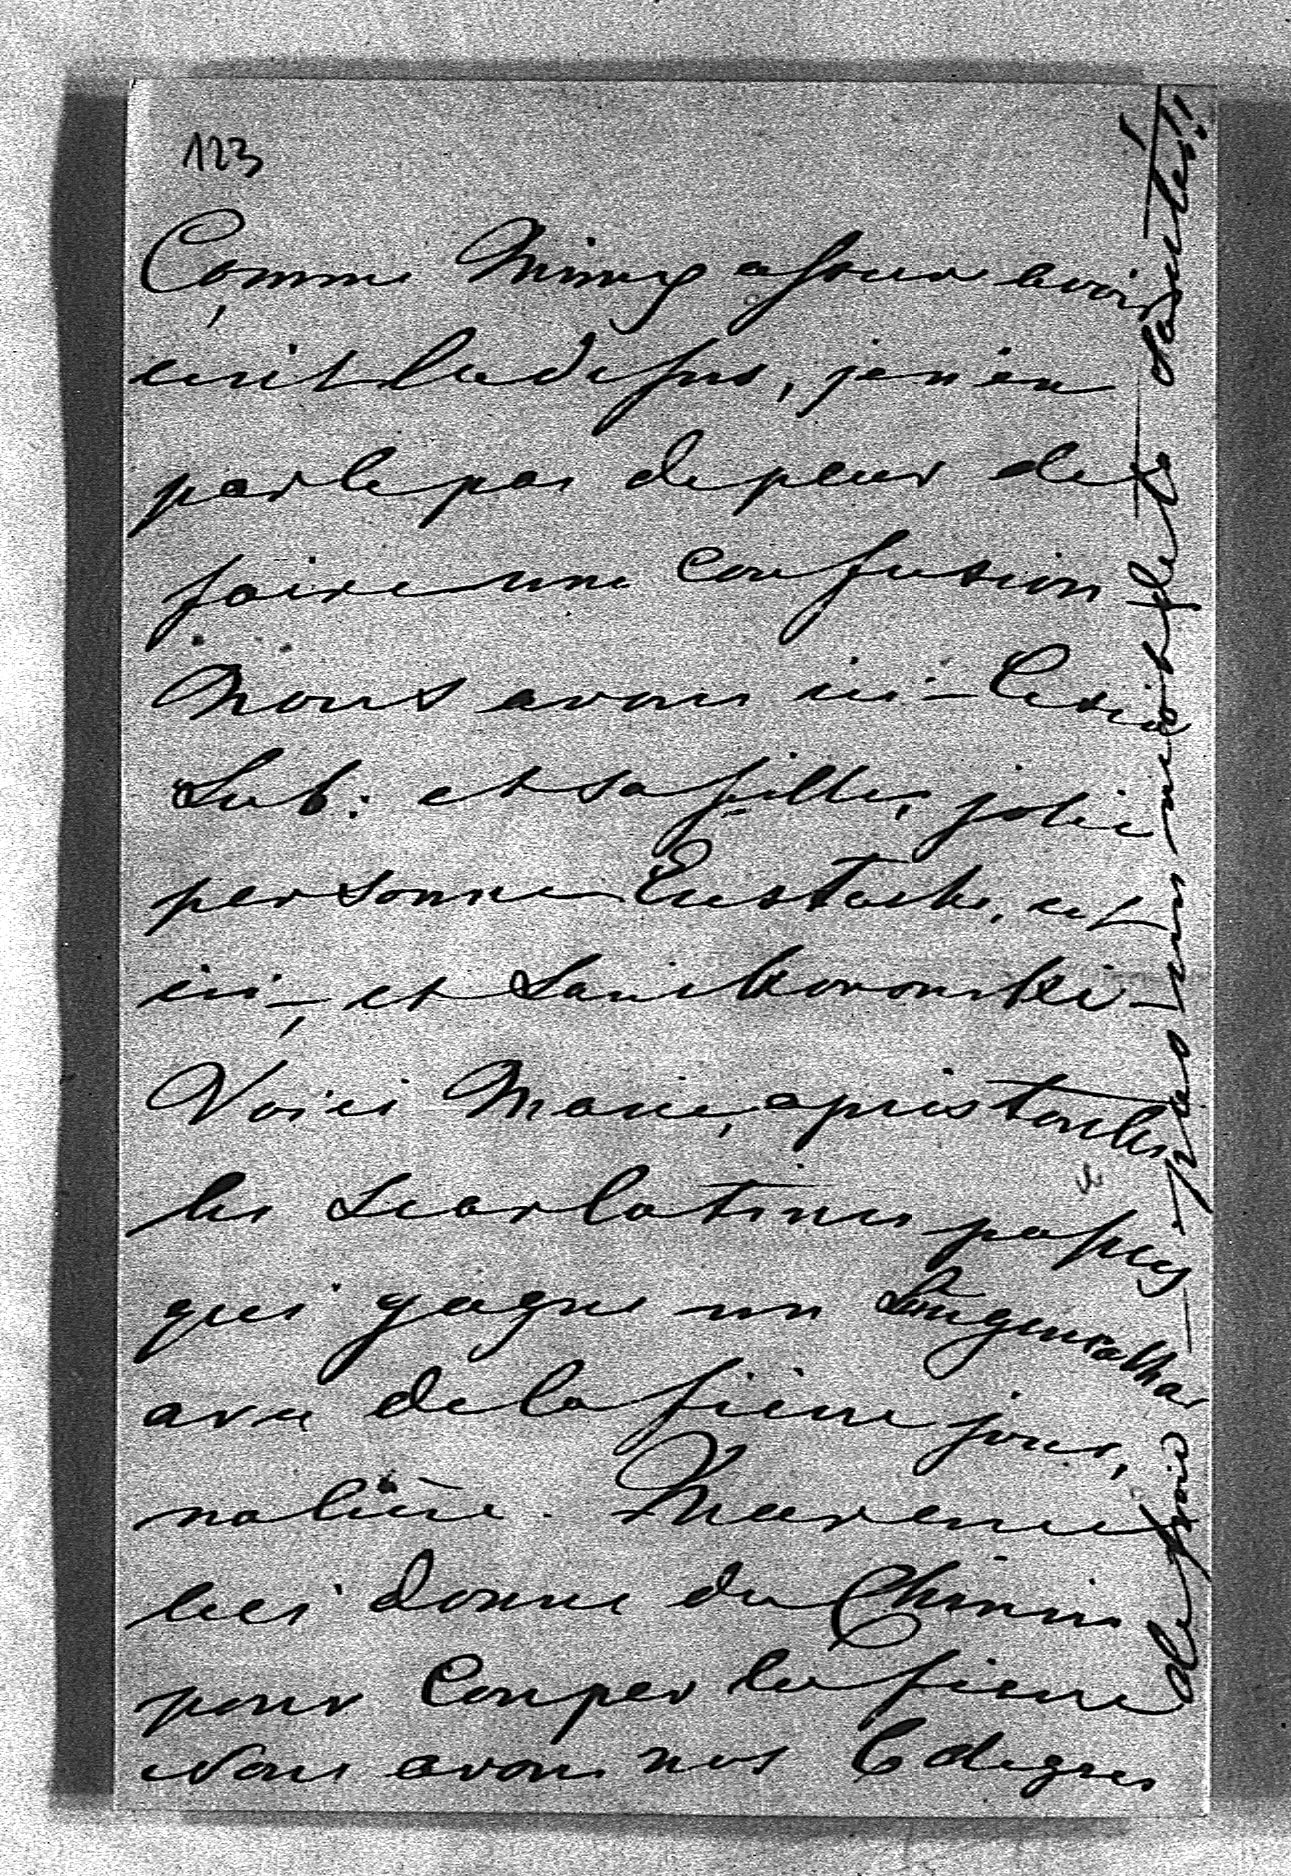 123
Comme Mimy assure avoir
écrit la dessus, je n'en
parle pas de peur de
faire une confusion
Nous avons ici – Cesia
Lub. et sa fille, jolie
personne Eustache, est
ici, et
Voici Marie, apris toutes
les scarlatines passées
qui gagne un Lungencathar
avec de la fièvre jour,
nalière.
lui donne du Chinin
pour couper la fièvre
Nous avons nos 6 degres
de froid – pas un